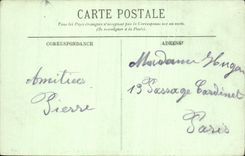 CARTE POSTALE
Tous les Pays étrangers n'acceptent pas la Correspondance au recto.
(Se renseigner à la Poste).
CORRESPONDANCE
ADRESSE
Amitiés
Pierre
Madame Hugon
13 Passage Cardinet
Paris